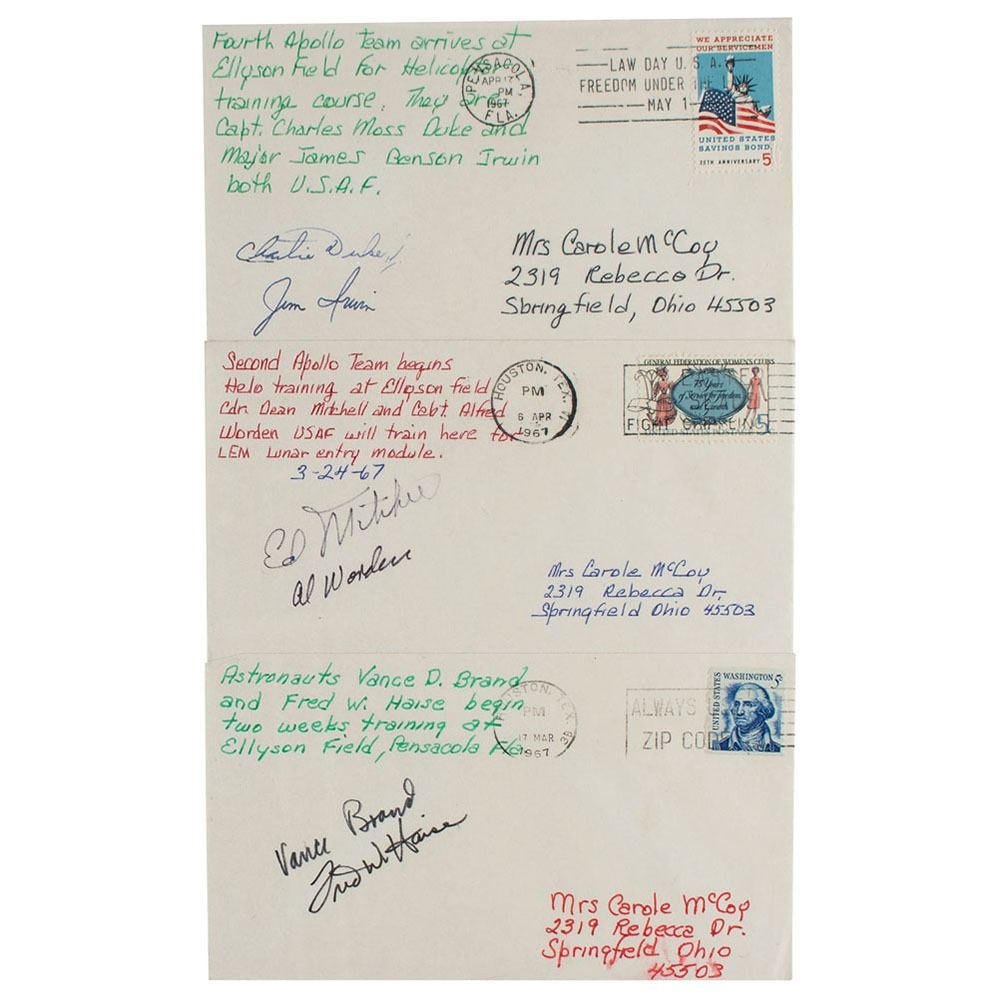 Fourth Apollo Team arrives at
Ellyson Field for Helicopter
training course. They are
Capt. Charles Moss Duke and
Major James Benson Irwin
both U.S.A.F.
PENSACOLA,
APR 17
PM
1967
FLA.
LAW DAY U.S.A.
FREEDOM UNDER THE
MAY 1
WE APPRECIATE
OUR SERVICEMEN
UNITED STATES
SAVINGS BOND
25TH ANNIVERSARY 5
Charlie Duke
Jim Irwin
Mrs Carole McCoy
2319 Rebecca Dr.
Springfield, Ohio 45503
Second Apollo Team begins
Helo training at Ellyson Field
Cdr. Dean Mitchell and Capt. Alfred
Worden USAF will train here for
LEM Lunar entry module.
3-24-67
HOUSTON, TEX.
PM
6 APR
1967
GENERAL FEDERATION OF WOMEN'S CLUBS
75 Years
of Service for Freedom
and Growth
5c
FIGHT
UNITED STATES
Ed Mitchell
Al Worden
Mrs Carole McCoy
2319 Rebecca Dr.
Springfield Ohio 45503
Astronauts Vance D. Brand
and Fred W. Haise begin
two weeks training at
Ellyson Field, Pensacola Fla
HOUSTON, TEX.
PM
17 MAR
1967
ALWAYS
ZIP CODE
UNITED STATES
WASHINGTON 5c
Vance Brand
Fred W Haise
Mrs Carole McCoy
2319 Rebecca Dr.
Springfield Ohio
45503